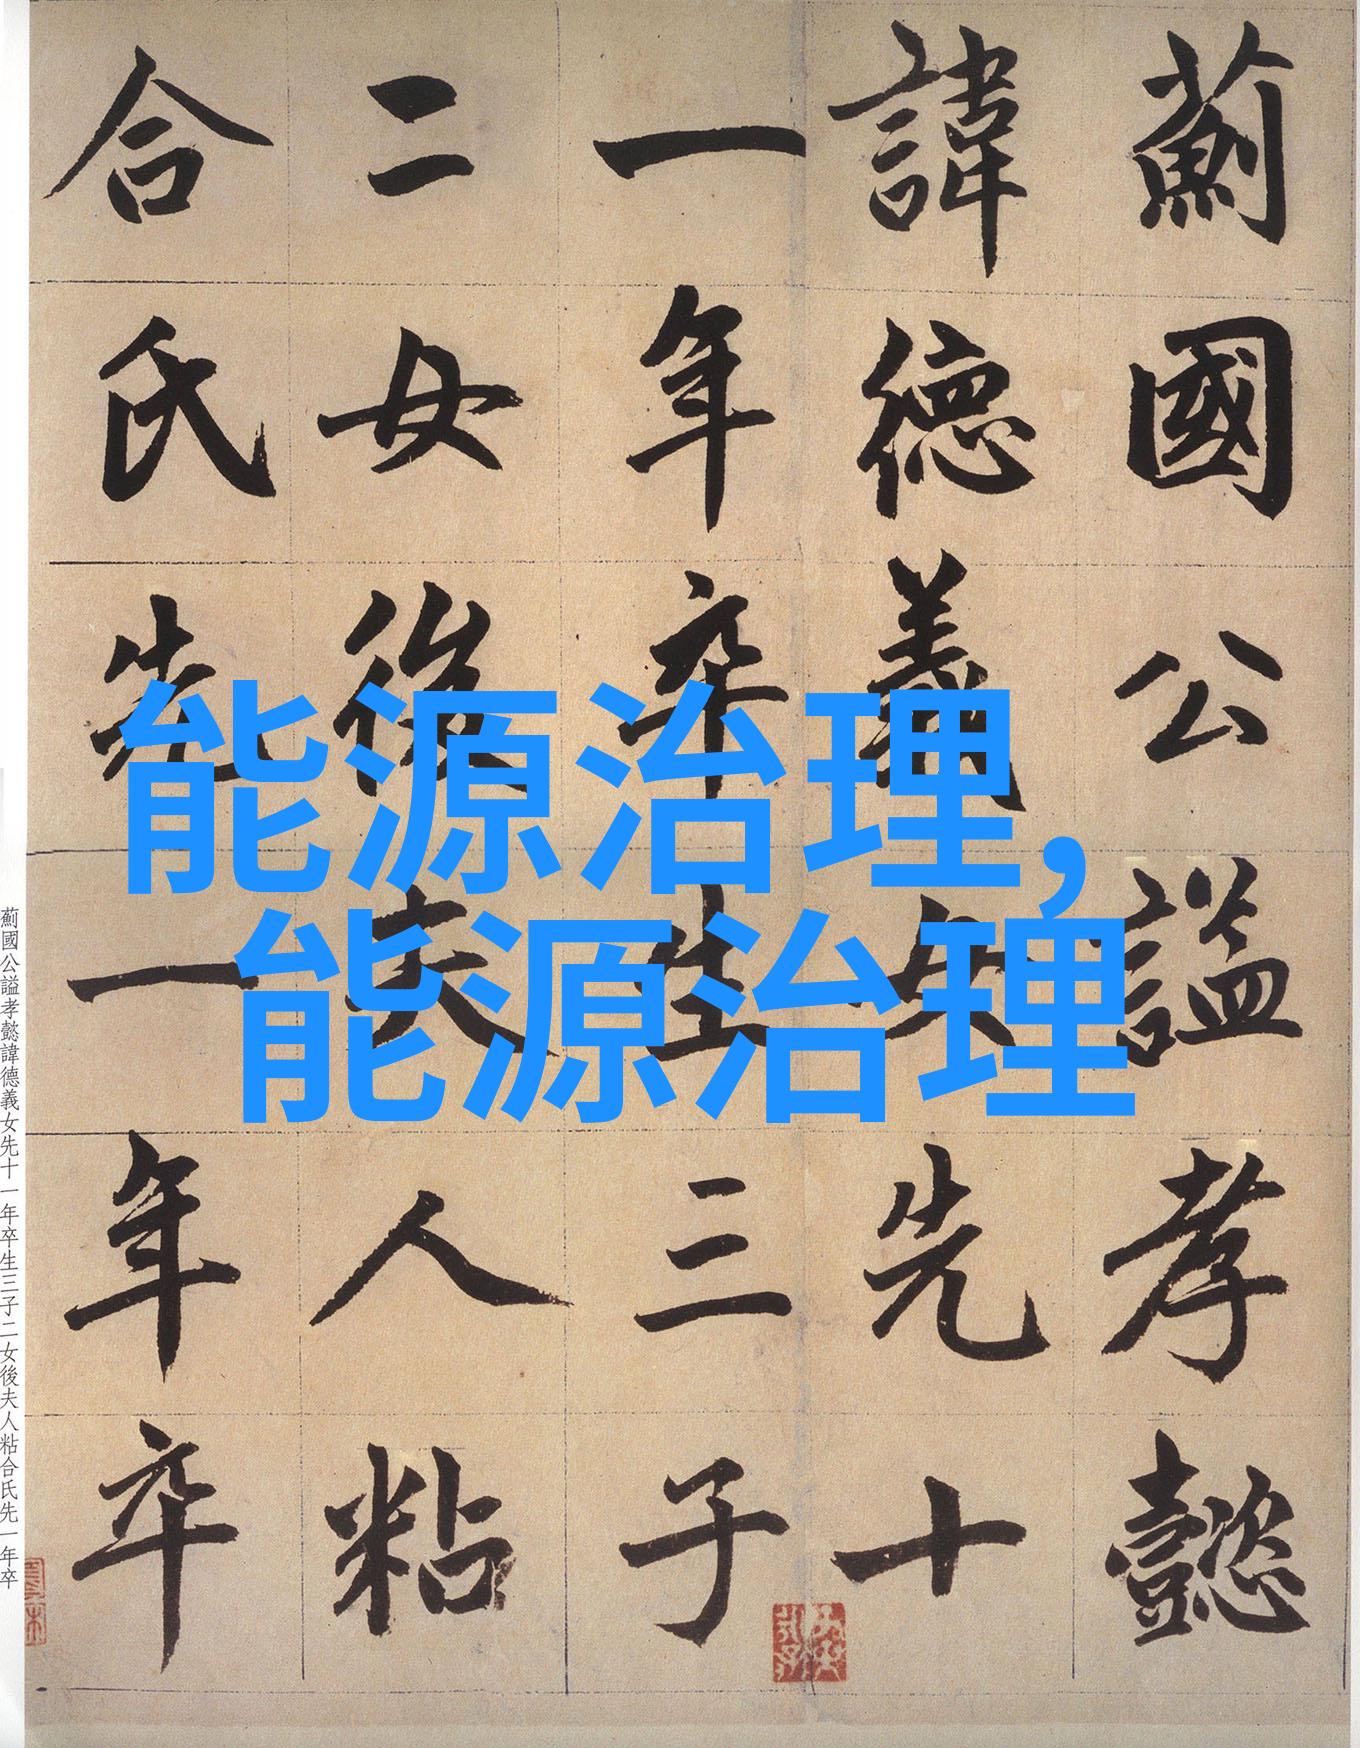 薊國公謚孝懿
諱德義女先十
一年卒生三子
二女後夫人粘
合氏先一年卒
能源治理,
能源治理
薊國公謚孝懿諱德義女先十一年卒生三子二女後夫人粘合氏先一年卒